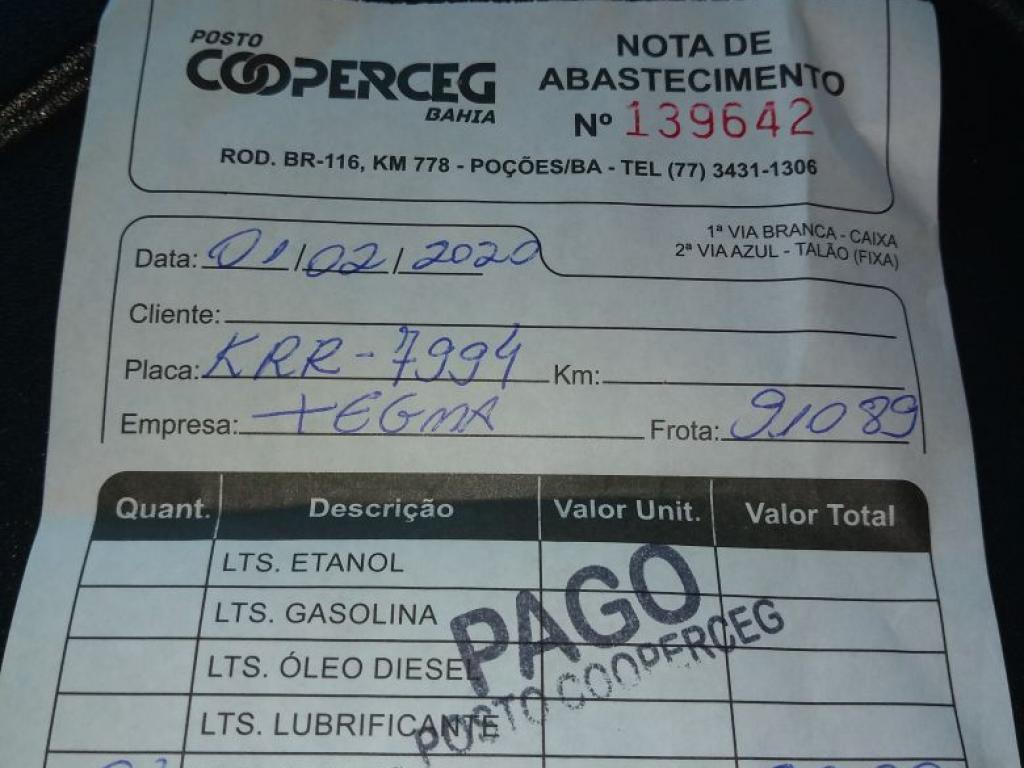 POSTO
COOPERCEG
BAHIA
NOTA DE
ABASTECIMENTO
Nº 139642
ROD. BR-116, KM 778 - POÇÕES/BA - TEL (77) 3431-1306
1ª VIA BRANCA - CAIXA
2ª VIA AZUL - TALÃO (FIXA)
Data: 01/02/2020
Cliente:
Placa: KRR-7994 Km:
Empresa: TEGMA Frota: 91089
Quant. Descrição Valor Unit. Valor Total
LTS. ETANOL
LTS. GASOLINA
LTS. ÓLEO DIESEL
LTS. LUBRIFICANTE
PAGO
POSTO COOPERCEG